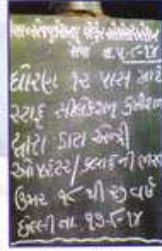 તા ૫-૯-૧૪
ધોરણ ૧૨ પાસ માટે
સ્ટાફ સીલેકશન કમીશન
દ્વારા ડાટા એન્ટ્રી
ઓપરેટર/કલાર્કની ભરતી
ઉંમર ૧૮ થી ૨૭ વર્ષ
છેલ્લી તા. ૧૭-૯-૧૪